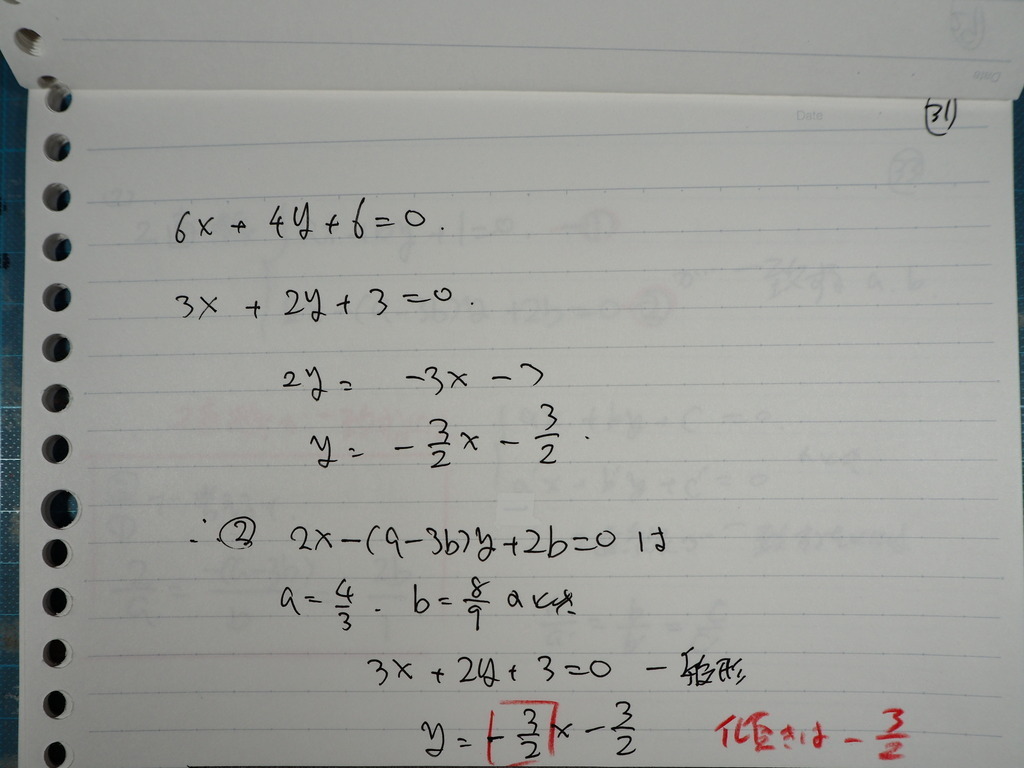 Date
31
6x + 4y + 6 = 0.
3x + 2y + 3 = 0.
2y = -3x - 3
y = -3/2 x - 3/2.
∴ ② 2x - (a - 3b)y + 2b = 0 は
a = 4/3. b = 8/9 のとき
3x + 2y + 3 = 0 - 一般形
y = -3/2 x - 3/2 傾きは - 3/2